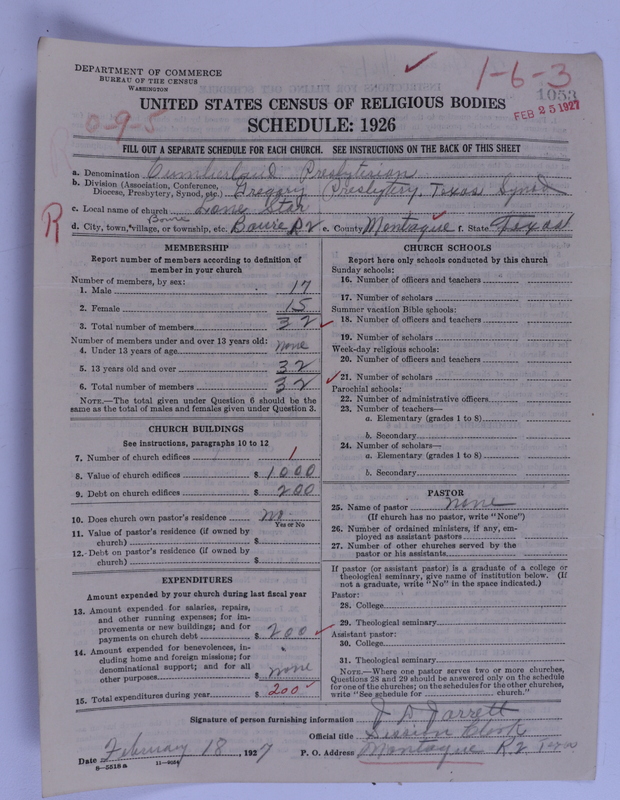 DEPARTMENT OF COMMERCE
BUREAU OF THE CENSUS
WASHINGTON
1-6-3
1053
FEB 25 1927
0-9-5
UNITED STATES CENSUS OF RELIGIOUS BODIES
SCHEDULE: 1926
FILL OUT A SEPARATE SCHEDULE FOR EACH CHURCH. SEE INSTRUCTIONS ON THE BACK OF THIS SHEET
a. Denomination Cumberland Presbyterian
b. Division (Association, Conference, Diocese, Presbytery, Synod, etc.) Gregory Presbytery, Texas Synod
c. Local name of church Lone Star
R
Bowie
d. City, town, village, or township, etc. Bowie R 2 e. County Montague f. State Texas
MEMBERSHIP
Report number of members according to definition of
member in your church
Number of members, by sex:
1. Male 17
2. Female 15
3. Total number of members 32
Number of members under and over 13 years old:
4. Under 13 years of age none
5. 13 years old and over 32
6. Total number of members 32
NOTE.—The total given under Question 6 should be the
same as the total of males and females given under Question 3.
CHURCH BUILDINGS
See instructions, paragraphs 10 to 12
7. Number of church edifices 1
8. Value of church edifices $ 1000
9. Debt on church edifices $ 200
10. Does church own pastor's residence no
Yes or No
11. Value of pastor's residence (if owned by
church) $
12. Debt on pastor's residence (if owned by
church) $
EXPENDITURES
Amount expended by your church during last fiscal year
13. Amount expended for salaries, repairs,
and other running expenses; for im-
provements or new buildings; and for
payments on church debt $ 200
14. Amount expended for benevolences, in-
cluding home and foreign missions; for
denominational support; and for all
other purposes $ none
15. Total expenditures during year $ 200
CHURCH SCHOOLS
Report here only schools conducted by this church
Sunday schools:
16. Number of officers and teachers
17. Number of scholars
Summer vacation Bible schools:
18. Number of officers and teachers
19. Number of scholars
Week-day religious schools:
20. Number of officers and teachers
21. Number of scholars
Parochial schools:
22. Number of administrative officers
23. Number of teachers—
a. Elementary (grades 1 to 8)
b. Secondary
24. Number of scholars—
a. Elementary (grades 1 to 8)
b. Secondary
PASTOR
25. Name of pastor none
(If church has no pastor, write "None")
26. Number of ordained ministers, if any, em-
ployed as assistant pastors
27. Number of other churches served by the
pastor or his assistants
If pastor (or assistant pastor) is a graduate of a college or
theological seminary, give name of institution below. (If
not a graduate, write "No" in the space indicated.)
Pastor:
28. College
29. Theological seminary
Assistant pastor:
30. College
31. Theological seminary
NOTE.—Where one pastor serves two or more churches,
Questions 28 and 29 should be answered only on the schedule
for one of the churches; on the schedules for the other churches,
write "See schedule for church."
Signature of person furnishing information J D Jarrett
Official title Session Clerk
Date February 18, 1927 P. O. Address Montague R 2 Texas
8—5518 a 11—9164